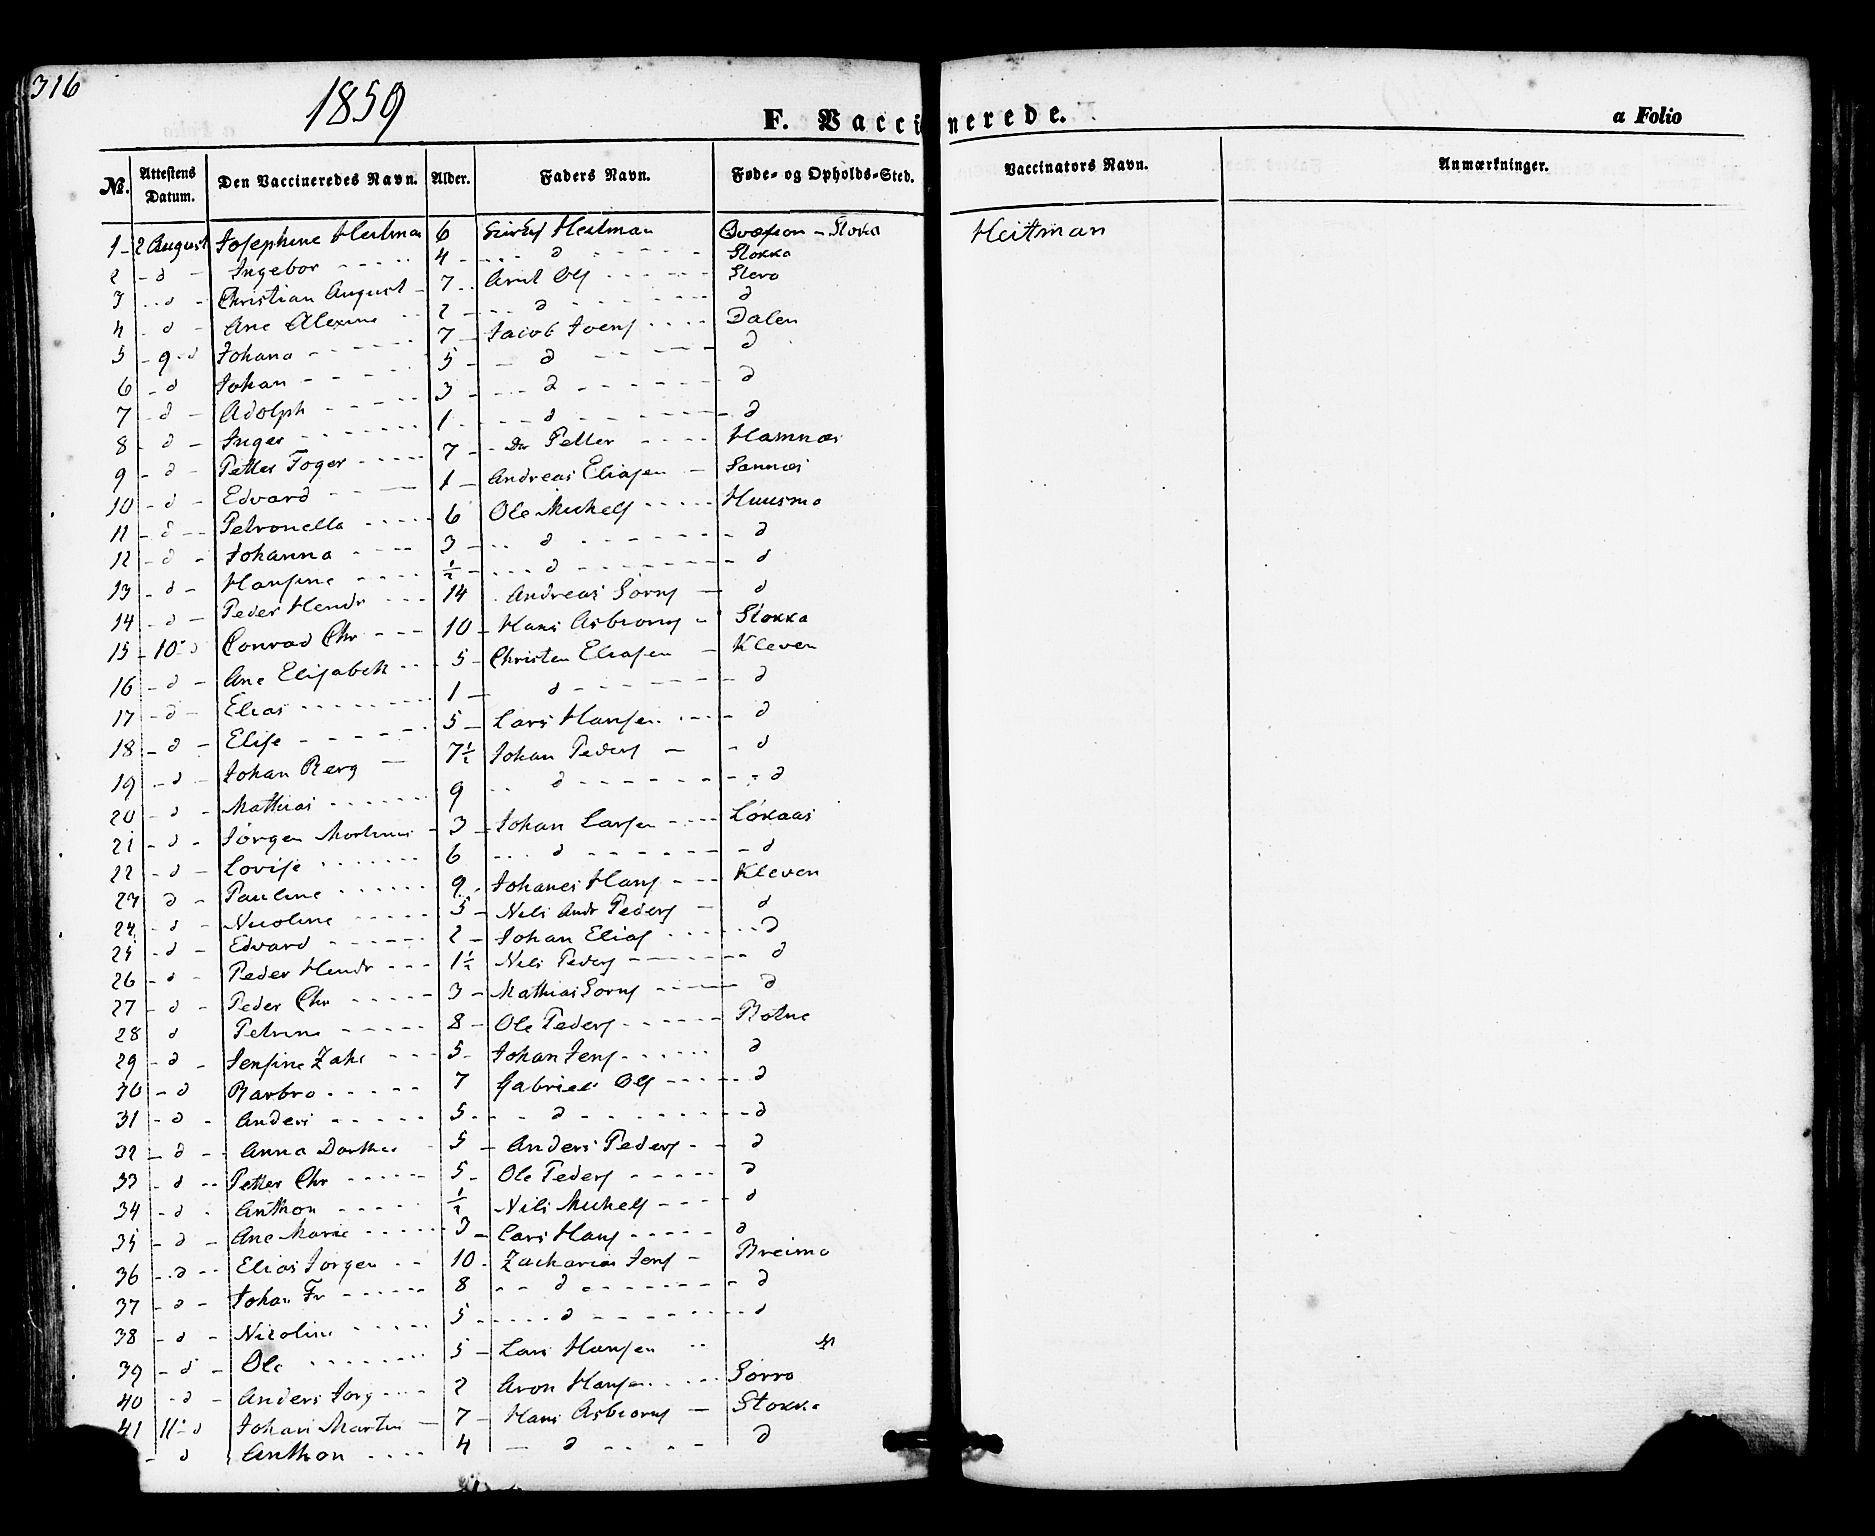 316
1859
F. Vaccinerede.
a Folio
No. Attestens Datum. Den Vaccineredes Navn. Alder. Faders Navn. Føde- og Opholds-Sted. Vaccinators Navn. Anmærkninger.
1 - 2 August Josephine Heitman 6 Heitman - Stoka Heitman
2 - d - Ingebor - - - - 4 - - - d - - - Stokka
3 - d - Christian August - 7 - Arnt Ols - - - Stero
4 - d - Ane Alexine - - 2 - - - d - - - d
5 - 9 - d Johana - - - - 7 - Jacob Joens - - - - Dalen
6 - d Johan - - - - 5 - - d - - - d
7 - d - Adolph - - - - 3 - - - d - - - d
8 - d - Inger - - - - 1 - - - d - - - d
9 - d - Petter Foger - - - - 7 - - Petter - - - - Hamnæs
10 - d - Edvard - - - 1 - Andreas Eliasen - Sannæs
11 - d - - Petronella - - - - 6 Ole Michels - - - - Huusmo
12 - d - Johanna - - - - 3 - - - d - - - d
13 - d - Hansine - - - - ½ - - - d - - - d
14 - d - Peder Hendr - - - 14 Andreas Sørns - d
15 - 10 - d Conrad Chr - - - 10 - Hans Asbiorns - Stokka
16 - d - Ane Elisabeth - - - 5 - Christen Eliasen - Kleven
17 - d - Elias - - - - 1 - d - - - d
18 - d - Elise - - - - 5 - Lars Hansen - - - d
19 - d - Johan Berg - 7½ Johan Peders - - d
20 - d - Mathias - - - - 9 - - d - - - d
21 - d - Jørgen Martinus - 3 - Johan Larsen - - - - Løkaas
22 - d - Lovise - - - - 6 - - - d - - - d
23 d - Pauline - - - - 9 - Johanes Hans - - - Kleven
24 - d - Nicoline - - - - 5 - Nils Andr Peders - d
25 - d - Edvard - - - - 2 - Johan Elias - - - d
26 - d - Peder Hendr - - - 1½ - Nils Peders - - - d
27 - d - Peder Chr - - - - 3 - Mathias Sørns - - - d
28 d Petrine - - - - 8 - Ole Peders - - - - Bolne
29 - d - Jensine Zahr - - - 5 - Johan Jens - - - - d
30 - d Barbro - - - - 7 Gabriel Ols - - - - d
31 - d - Anders - - - - 5 - - d - - - d
32 - d - - Anna Dorthea - 5 - Anders Peders - - d
33 - d - - Petter Chr - - - - 5 - Ole Peders - - - - d
34 - d - Anthon - - - - ½ - Nils Michels - - - - d
35 - d - Ane Marie - - - - 3 - Lars Hans - - - - d
36 - d - - Elias Jørgen - - 10 - Zacharias Jens - Breimo
37 - d - Johan Fr - - - - 8 - - d - - - d
38 - d - Nicoline - - - - 5 - - - d - - - d
39 - d - Ole - - - - 5 - Lars Hansen - -
40 - d - Anders Jørg - - - 2 Aron Hansen - - - Sørro
41 11 - d Johan Martin - 7 - Hans Asbiorns - Stokka
- d Anthon - - - - 4 - d - - - d